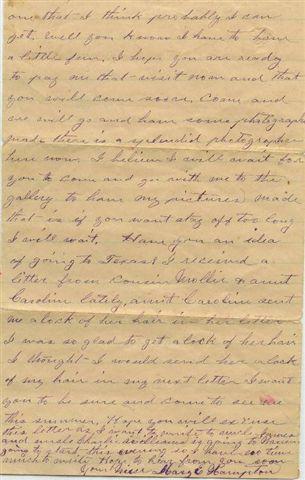 one that I think probably I can
get. Well you know I have to have
a little fun. I hope you are ready
to pay me that visit now and that
you will come soon. Come and
we will go and have some photographs
made there is a splendid photographer
here now. I believe I will wait for
you to come and go with me to the
gallery to have my pictures made
that is if you want stay off too long
I will wait. Have you an idea
of going to Texas? I received a
letter from cousin Mollie & aunt
Caroline lately, aunt Caroline sent
me a lock of her hair in her letter
I was so glad to get a lock of her hair
I thought I would send her a lock
of my hair in my next letter I want
you to be sure and come to see us
this summer. Hope you will excuse
this letter as I want to write to uncle
and uncle Charlie Williams is going to
going to start this evening so I have no time
much to write. Hope to hear from you soon
Your Niece Mary E Hampton